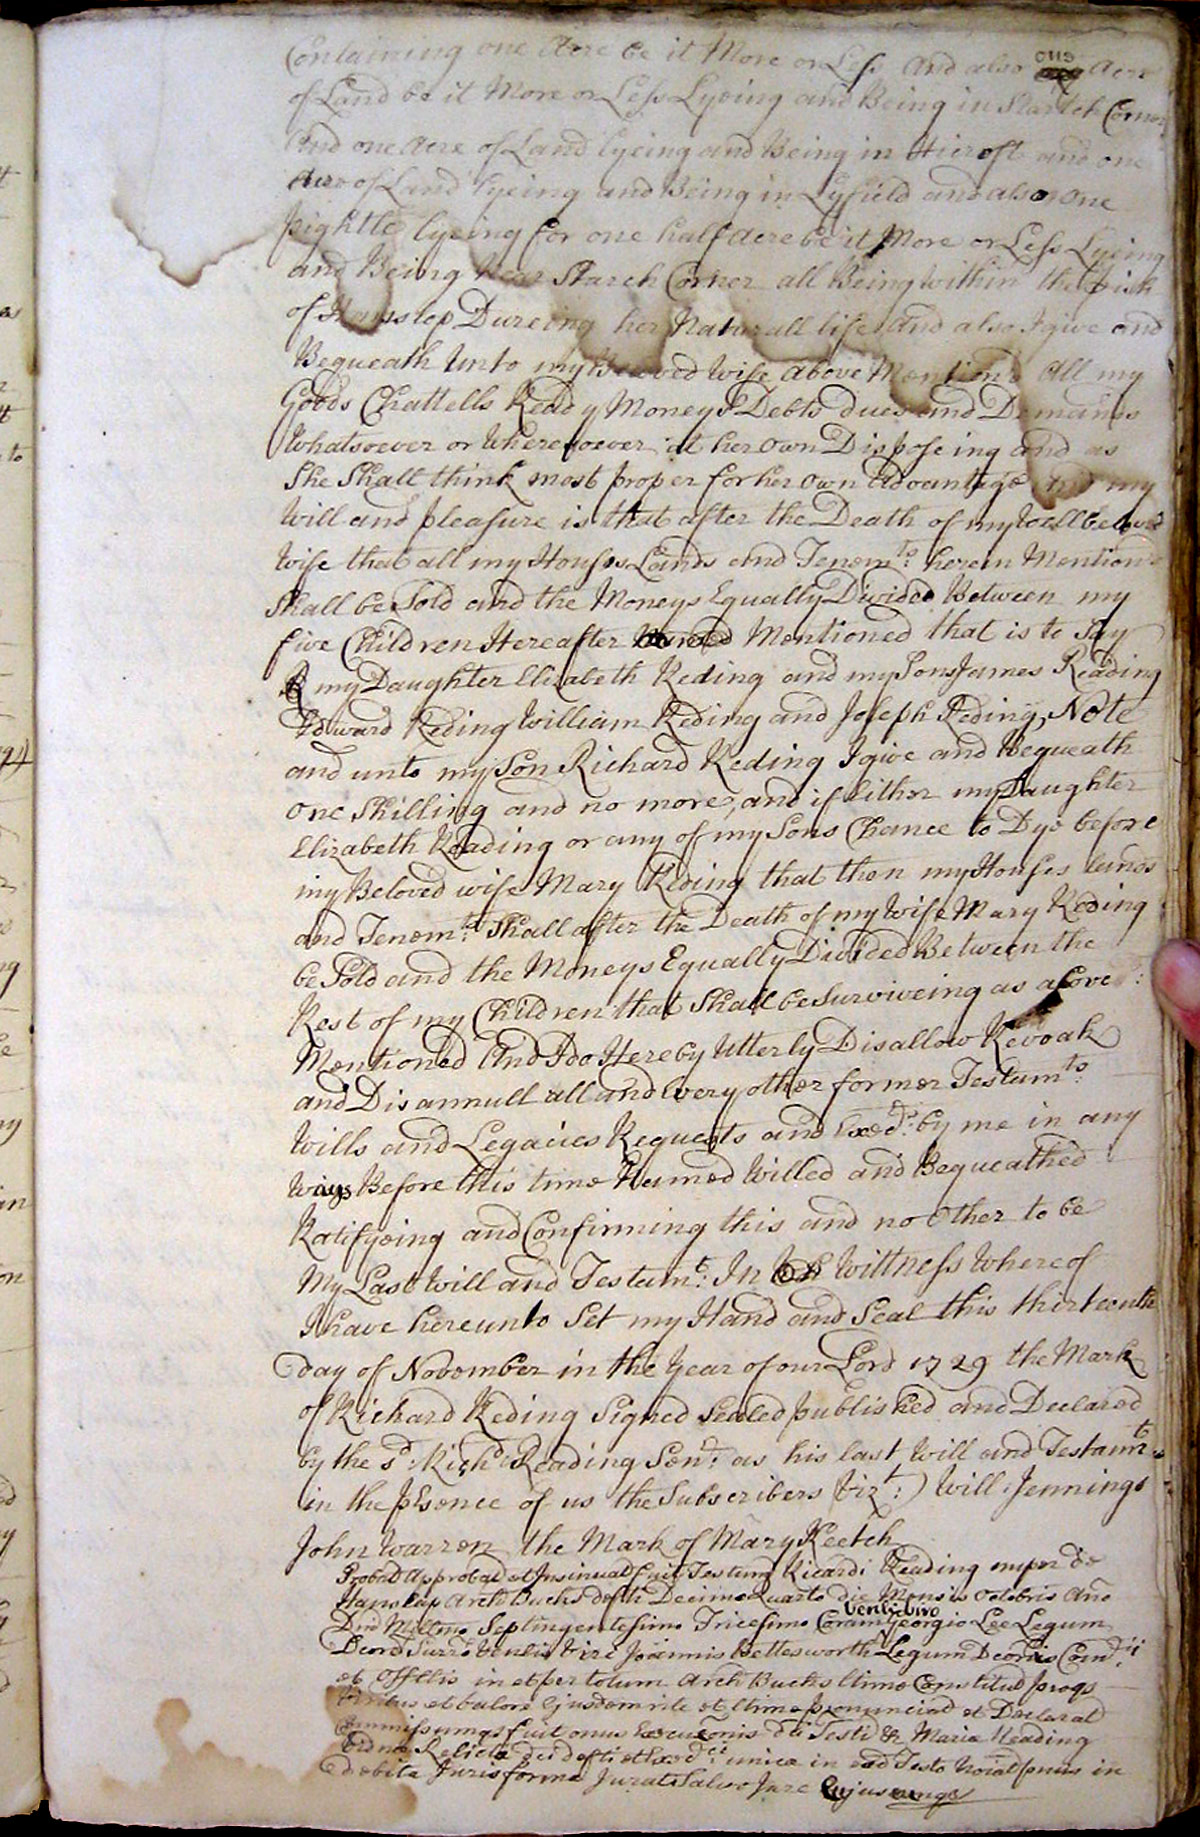 Containing one Acre be it More or Less And also one Acre
of Land be it More or Less Lyeing and Being in Starch Corner
And one Acre of Land lyeing and Being in Hicroft and one
Acre of Land Lyeing and Being in Lyfield and also One
pightle lyeing for one half Acre be it More or Less Lyeing
and Being Near Starch Corner all Being within the Prish
of Hanslep Dureing her Naturall life And also I give and
Bequeath Unto my Beloved Wife above Mention'd All my
Goods Chattells Ready Moneys Debts dues and Demands
Whatsoever or Wheresoever at her own Disposeing and as
She Shall think most proper for her own Advantage And my
Will and pleasure is that after the Death of my Wellbeloved
Wife that all my Houses Lands and Tenemts: herein Mention'd
Shall be Sold and the Moneys Equally Divided Between my
five Children Hereafter Mentioned that is to Say
my Daughter Elizabeth Reding and my Sons James Reading
Edward Reding William Reding and Joseph Reding, Note
and unto my Son Richard Reding I give and Bequeath
one Shilling and no more, and if Either my Daughter
Elizabeth Reading or any of my Sons Chance to Dye before
my Beloved wife Mary Reding that then my Houses lands
and Tenemts: Shall after the Death of my Wife Mary Reding
be Sold and the Moneys Equally Divided Between the
Rest of my Children that Shall be Surviveing as afore:
Mentioned And I do Hereby Utterly Disallow Revoak
and Disannull all and Every other former Testamts:
Wills and Legacies Requests and Exeds: by me in any
Ways Before this time Named Willed and Bequeathed
Ratifyeing and Confirming this and no Other to be
My Last Will and Testamt: In Wittness Whereof
I have hereunto Set my Hand and Seal this thirteenth
day of November in the Year of our Lord 1729 the Mark
of Richard Reding Signed Sealed published and Declared
by the sd: Richd Reading Send: as his last Will and Testamt
in the pesence of us the Subscribers (Vizt:) Will: Jennings
John Warren the Mark of Mary Keetch
Probat Approbat et Insinuat fuit Testum Ricardi Reading nuper de
Hanslap Arch Bucks defti Decimo Quarto die Mensis Octobris Ano
Dni Millmo Septingentesimo Tricesimo Coram Venli viro Georgio Lee Legum
Dcore Surro Venlis Viri Joannis Bettesworth Legum Dcoris Comrii
et Offtlis in et per totum Arch Bucks ltime Constitut proqs
Viribus et valore Ejusdem rite et ltime pronunciat et Declarat
Commissumqs fuit onus Executionis dti Testi &c Mariæ Reading
Viduæ Relictæ dci defti et Exec: unicæ in eod Testo Noiat prius in
debita Juris forma Jurat Salvo Jure Cujuscunqs